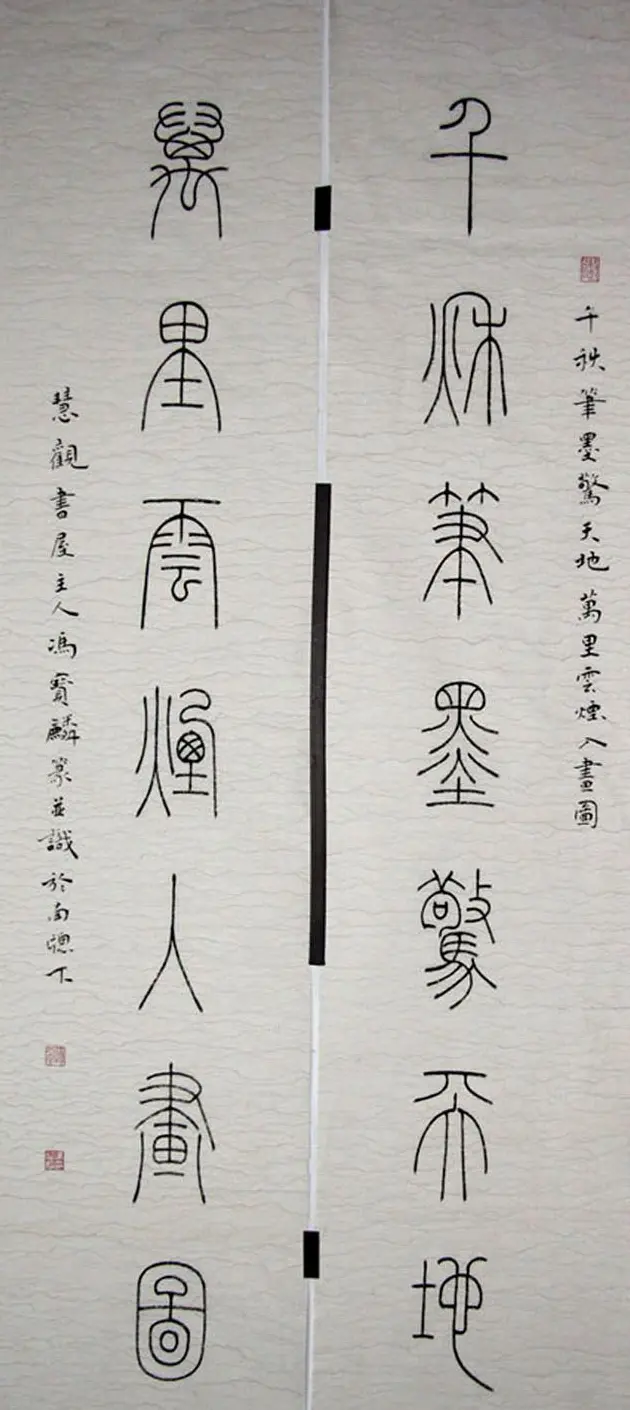 千秋筆墨驚天地萬里雲煙入畫圖
千秋筆墨驚天地
萬里雲煙入畫圖
慧觀書屋主人馮寶麟篆並識於南窗下